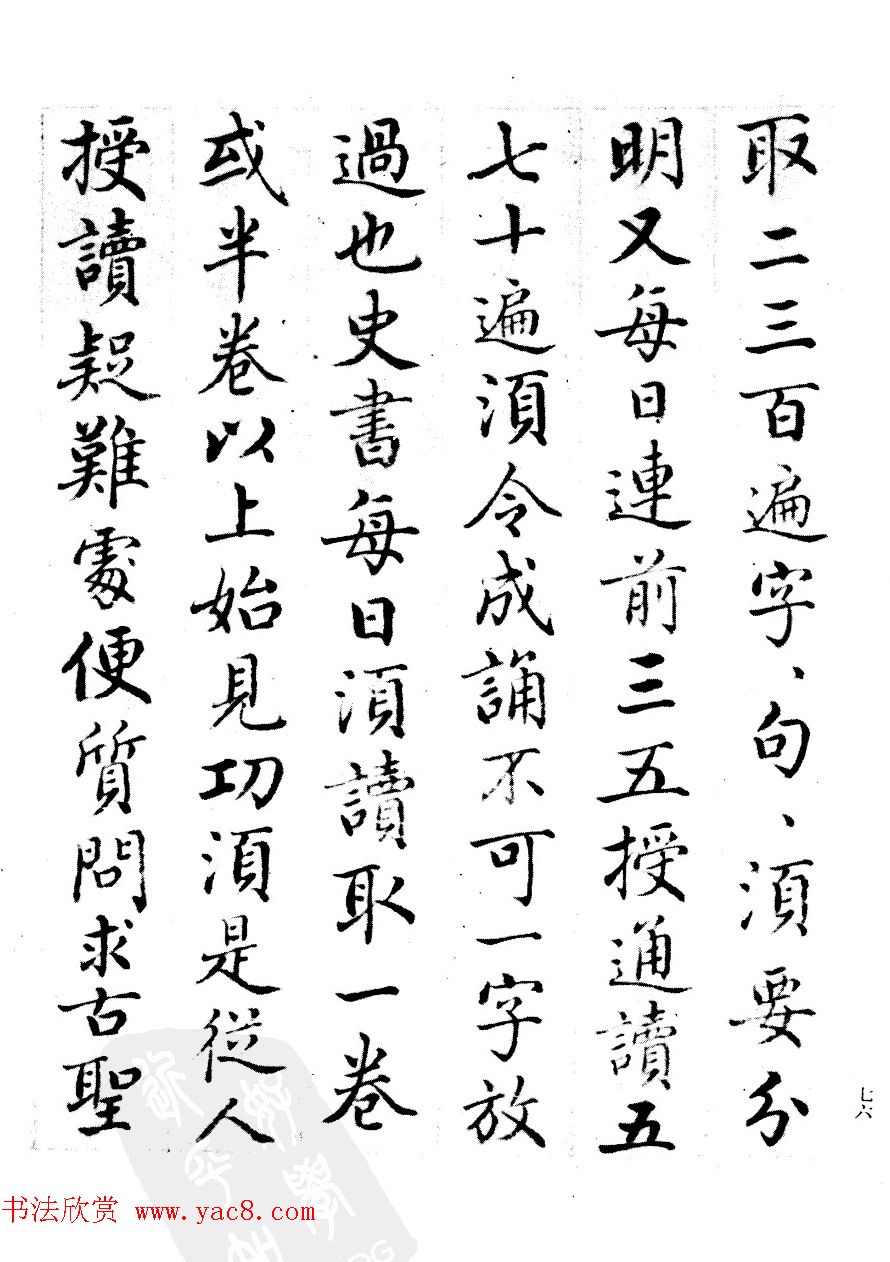 取二三百遍字、句、須要分
明又每日連前三五授通讀五
七十遍須令成誦不可一字放
過也史書每日須讀取一卷
或半卷以上始見功須是從人
授讀疑難處便質問求古聖
七六
书法欣赏 www.yac8.com